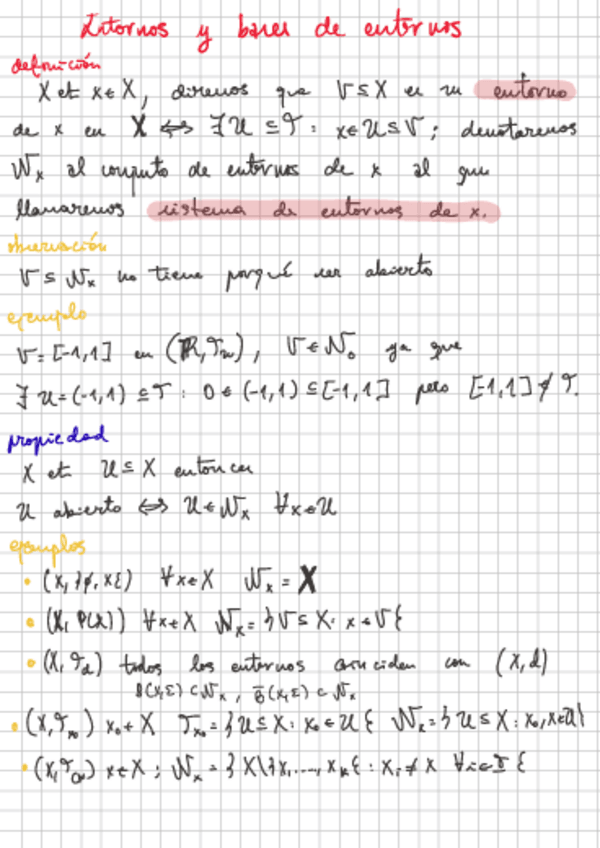 Entornos y bases de entornos
definición
X et x∈X, diremos que V⊆X es un entorno
de x en X ⟺ ∃U⊆𝒯 : x∈U⊆V; denotaremos
𝒩x al conjunto de entornos de x al que
llamaremos sistema de entornos de x.
observación
V⊆𝒩x no tiene porqué ser abierto
ejemplo
V=[-1,1] en (ℝ,𝒯u), V∈𝒩₀ ya que
∃U=(-1,1)⊆𝒯 : 0∈(-1,1)⊆[-1,1] pero [-1,1]∉𝒯.
propiedad
X et U⊆X entonces
U abierto ⟺ U∈𝒩x ∀x∈U
ejemplos
• (X,{∅,X}) ∀x∈X 𝒩x = X
• (X,P(X)) ∀x∈X 𝒩x={V⊆X: x∈V}
• (X,𝒯d) todos los entornos coinciden con (X,d)
B(x,ε)⊂𝒩x, B̄(x,ε)⊂𝒩x
• (X,𝒯x₀) x₀∈X 𝒯x₀={U⊆X: x₀∈U} 𝒩x={U⊆X: x₀,x∈U}
• (X,𝒯) x∈X; 𝒩x={X\{x₁,...,xk}: xi≠x ∀i∈I}